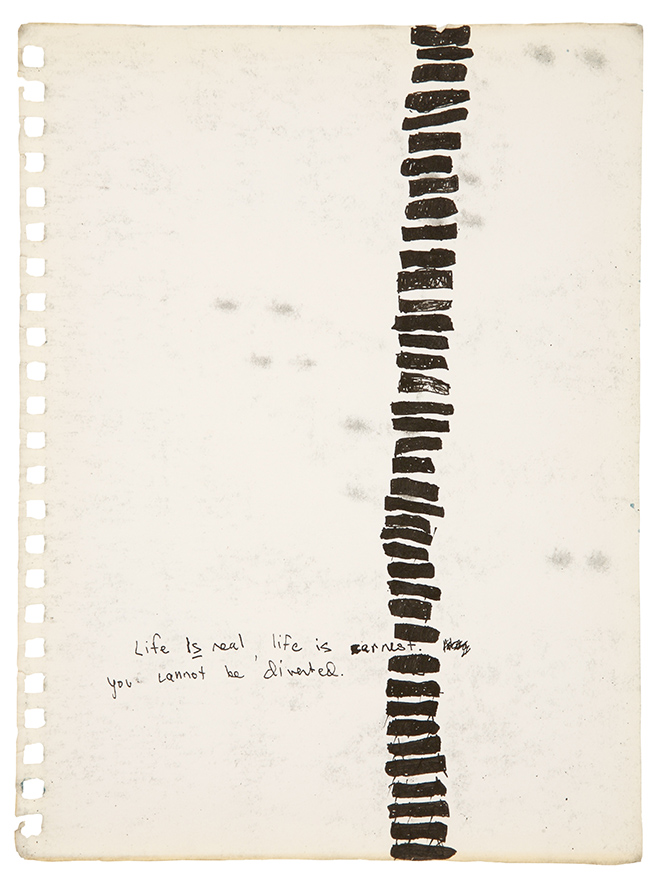 Life Is real, life is earnest.
you cannot be diverted.